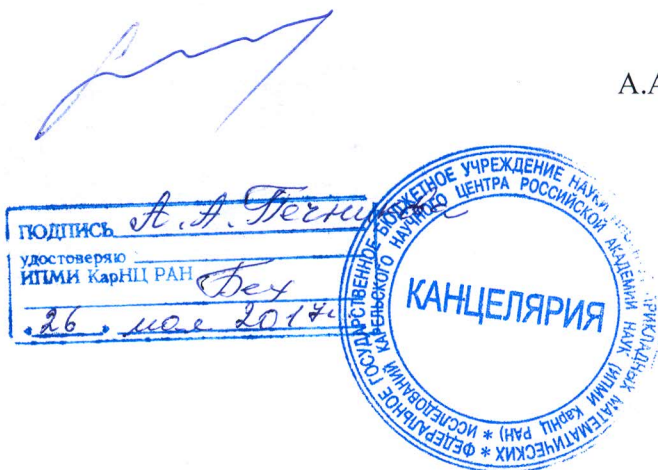 А.А
ПОДПИСЬ А. А. Печникова
удостоверяю
ИПМИ КарНЦ РАН
26 мая 2017г
ФЕДЕРАЛЬНОЕ ГОСУДАРСТВЕННОЕ БЮДЖЕТНОЕ УЧРЕЖДЕНИЕ НАУКИ ПРИКЛАДНЫХ МАТЕМАТИЧЕСКИХ
ИССЛЕДОВАНИЙ КАРЕЛЬСКОГО НАУЧНОГО ЦЕНТРА РОССИЙСКОЙ АКАДЕМИИ НАУК (ИПМИ КарНЦ РАН)
КАНЦЕЛЯРИЯ